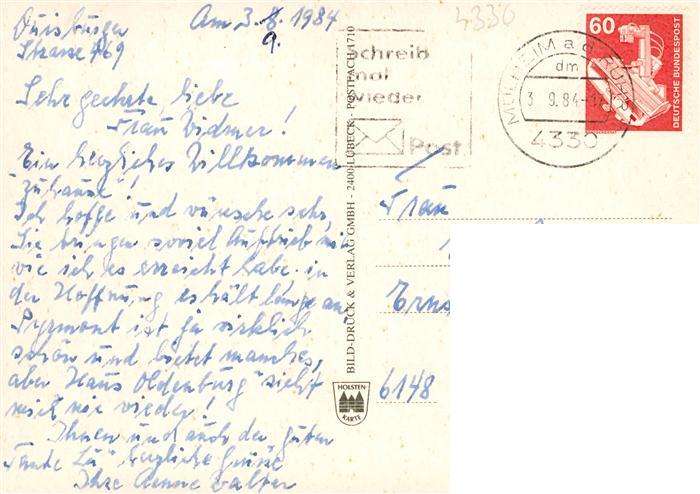 Duisburger
Strasse 469
Am 3. 8. 1984
9.
Sehr geehrte liebe
Frau Widmer!
Ein herzliches Willkommen
zuhause!
Ich hoffe und wünsche sehr,
Sie bringen soviel Auftrieb mit
wie ich es erreicht habe. in
der Hoffnung es hält lange an
Pyrmont ist ja wirklich
schön und bietet manches,
aber Haus Oldenburg" sieht
mich nie wieder!
Ihnen und auch der guten
Tante Lu" herzliche Grüße
Ihre Aenne Walter
BILD-DRUCK & VERLAG GMBH - 2400 LÜBECK - POSTFACH 1710
HOLSTEN
KARTE
4330
Schreib
mal
wieder
Post
MÜLHEIM a d RUHR 1
dm
3. 9. 84-17
4330
60
DEUTSCHE BUNDESPOST
Frau
Erns
6148